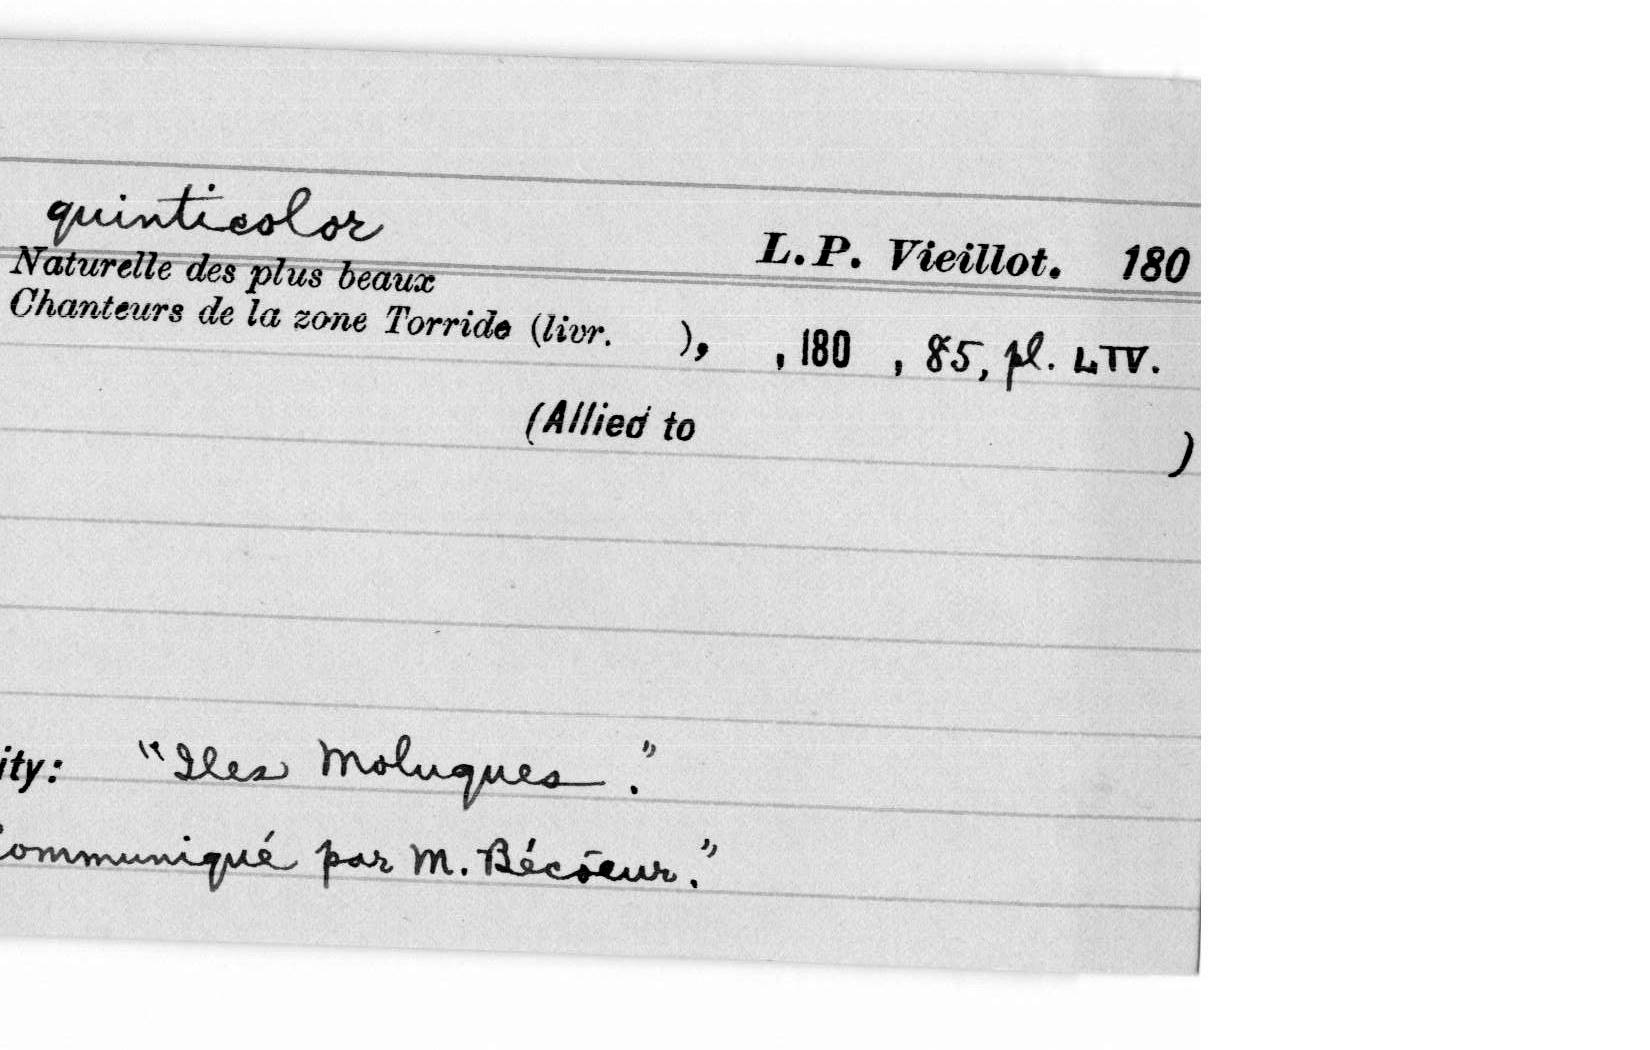 quinticolor L.P. Vieillot. 180
Naturelle des plus beaux
Chanteurs de la zone Torride (livr. ), , 180 , 85, pl. LIV.
(Allied to )
ity: "Iles Moluques."
Communiqué par M. Bécoeur."